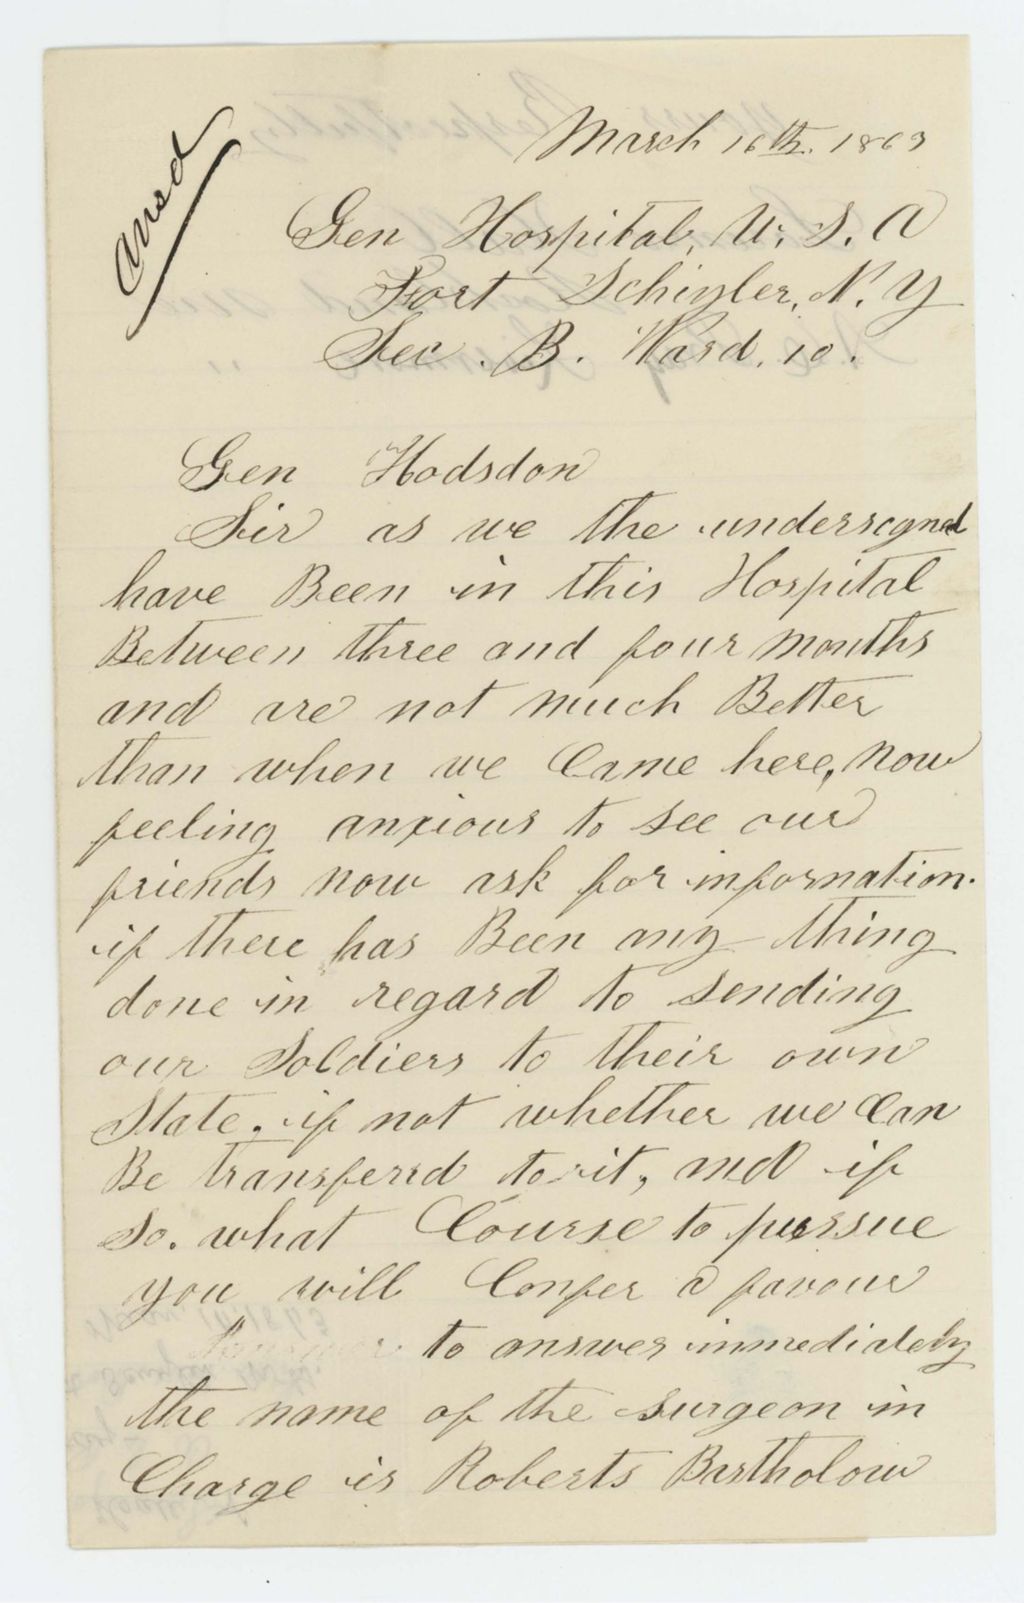 Ansd
March 16th. 1863
Gen Hospital, U. S. A
Fort Schiyler, N. Y
Sec. B. Ward, 10.
Gen Hodsdon
Sir as we the undersigned
have Been in this Hospital
Between three and four months
and are not much Better
than when we Came here, now
feeling anxious to see our
friends now ask for information.
if there has Been any thing
done in regard to sending
our Soldiers to their own
State. if not whether we Can
Be transferrd to it, and if
So. what Course to pursue
you will Confer a favour
to answer immediately
the name of the surgeon in
Charge is Roberts Bartholow